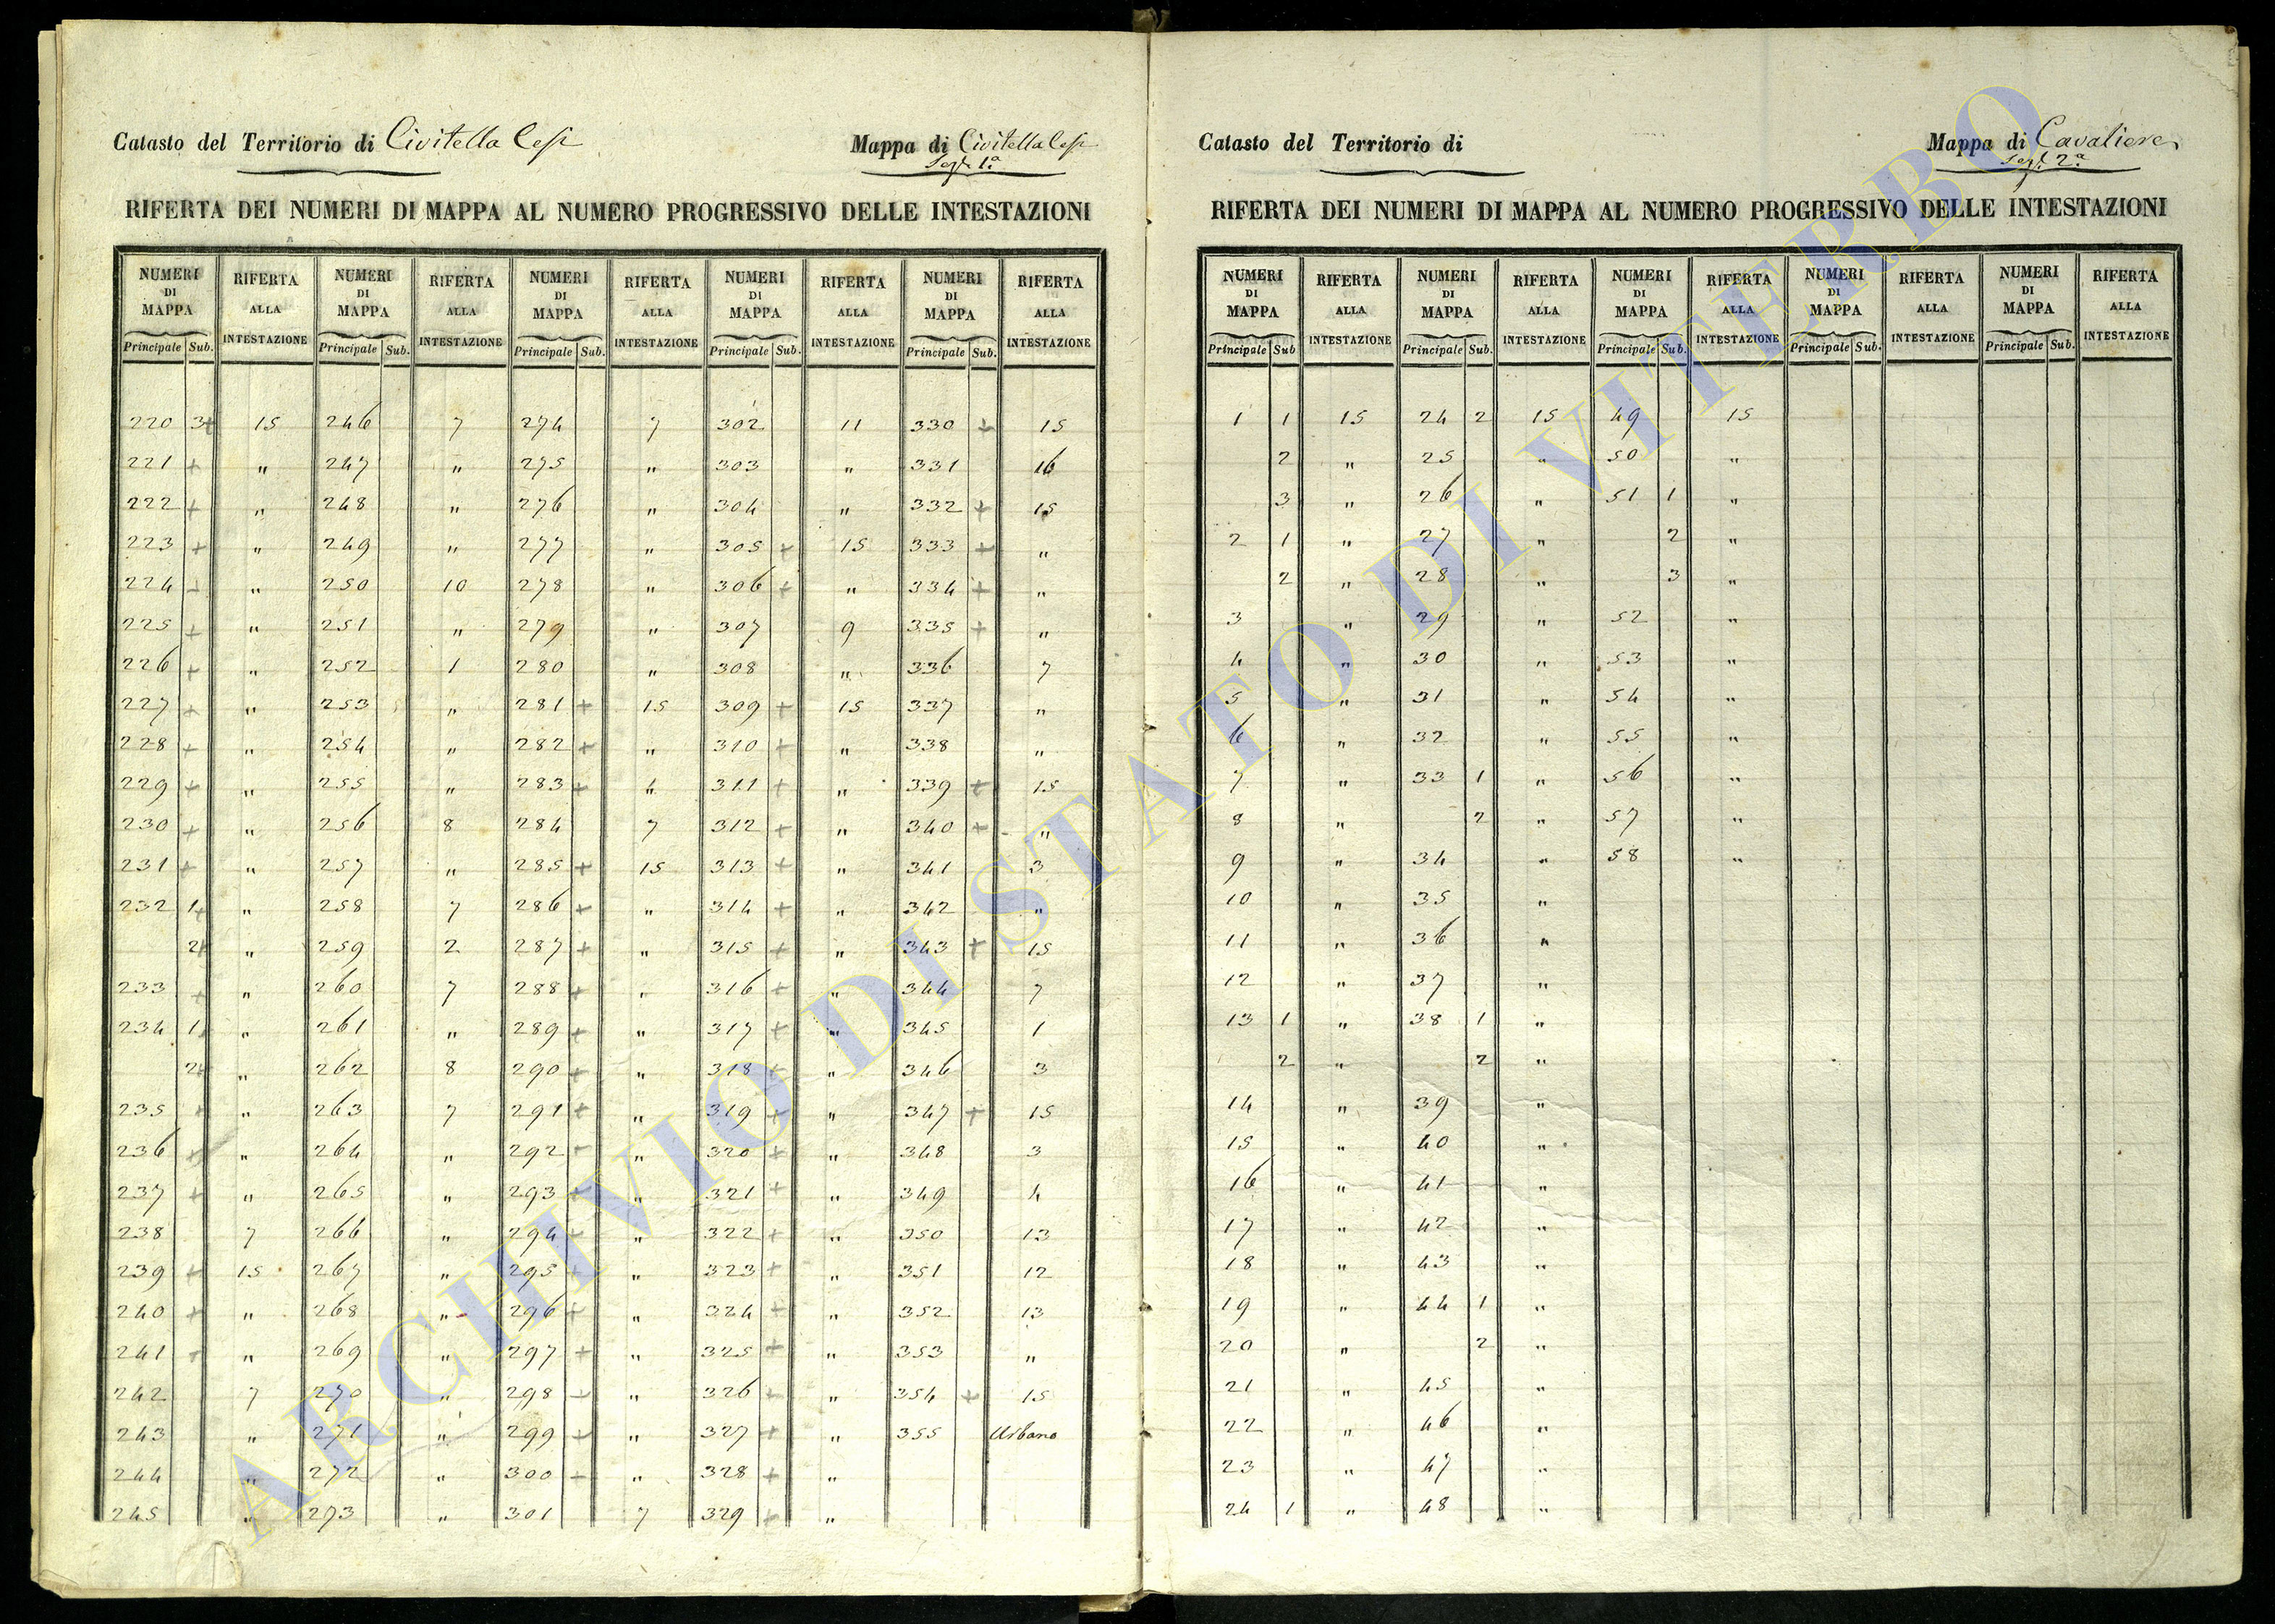 Catasto del Territorio di Civitella Cesi Mappa di Civitella Cesi
Sez.e 1ª
RIFERTA DEI NUMERI DI MAPPA AL NUMERO PROGRESSIVO DELLE INTESTAZIONI
NUMERI DI MAPPA RIFERTA ALLA INTESTAZIONE NUMERI DI MAPPA RIFERTA ALLA INTESTAZIONE NUMERI DI MAPPA RIFERTA ALLA INTESTAZIONE NUMERI DI MAPPA RIFERTA ALLA INTESTAZIONE NUMERI DI MAPPA RIFERTA ALLA INTESTAZIONE
Principale Sub. Principale Sub. Principale Sub. Principale Sub. Principale Sub.
220 3+ 15 246 7 274 7 302 11 330 + 15
221 + " 247 " 275 " 303 " 331 16
222 + " 248 " 276 " 304 " 332 + 15
223 + " 249 " 277 " 305 + 15 333 + "
224 + " 250 10 278 " 306 + " 334 + "
225 + " 251 " 279 " 307 9 335 + "
226 + " 252 1 280 " 308 " 336 7
227 + " 253 " 281 + 15 309 + 15 337 "
228 + " 254 " 282 + " 310 + " 338 "
229 + " 255 " 283 + " 311 + " 339 + 15
230 + " 256 8 284 7 312 + " 340 + "
231 + " 257 " 285 + 15 313 + " 341 3
232 1+ " 258 7 286 + " 314 + " 342 "
2+ " 259 2 287 + " 315 + " 343 + 15
233 + " 260 7 288 + " 316 + " 344 7
234 1+ " 261 " 289 + " 317 + " 345 1
2+ " 262 8 290 + " 318 + " 346 3
235 + " 263 7 291 + " 319 + " 347 + 15
236 + " 264 " 292 + " 320 + " 348 3
237 + " 265 " 293 + " 321 + " 349 4
238 7 266 " 294 + " 322 + " 350 13
239 + 15 267 " 295 + " 323 + " 351 12
240 + " 268 " 296 + " 324 + " 352 13
241 + " 269 " 297 + " 325 + " 353 "
242 7 270 " 298 + " 326 + " 354 + 15
243 " 271 " 299 + " 327 + " 355 Urbano
244 " 272 " 300 + " 328 + "
245 " 273 " 301 7 329 + "
Catasto del Territorio di Mappa di Cavaliere
Sez.e 2ª
RIFERTA DEI NUMERI DI MAPPA AL NUMERO PROGRESSIVO DELLE INTESTAZIONI
NUMERI DI MAPPA RIFERTA ALLA INTESTAZIONE NUMERI DI MAPPA RIFERTA ALLA INTESTAZIONE NUMERI DI MAPPA RIFERTA ALLA INTESTAZIONE NUMERI DI MAPPA RIFERTA ALLA INTESTAZIONE NUMERI DI MAPPA RIFERTA ALLA INTESTAZIONE
Principale Sub Principale Sub. Principale Sub. Principale Sub. Principale Sub.
1 1 15 24 2 15 49 15
2 " 25 " 50 "
3 " 26 " 51 1 "
2 1 " 27 " 2 "
2 " 28 " 3 "
3 " 29 " 52 "
4 " 30 " 53 "
5 " 31 " 54 "
6 " 32 " 55 "
7 " 33 1 " 56 "
8 " 2 " 57 "
9 " 34 " 58 "
10 " 35 "
11 " 36 "
12 " 37 "
13 1 " 38 1 "
2 " 2 "
14 " 39 "
15 " 40 "
16 " 41 "
17 " 42 "
18 " 43 "
19 " 44 1 "
20 " 2 "
21 " 45 "
22 " 46 "
23 " 47 "
24 1 " 48 "
ARCHIVIO DI STATO DI VITERBO